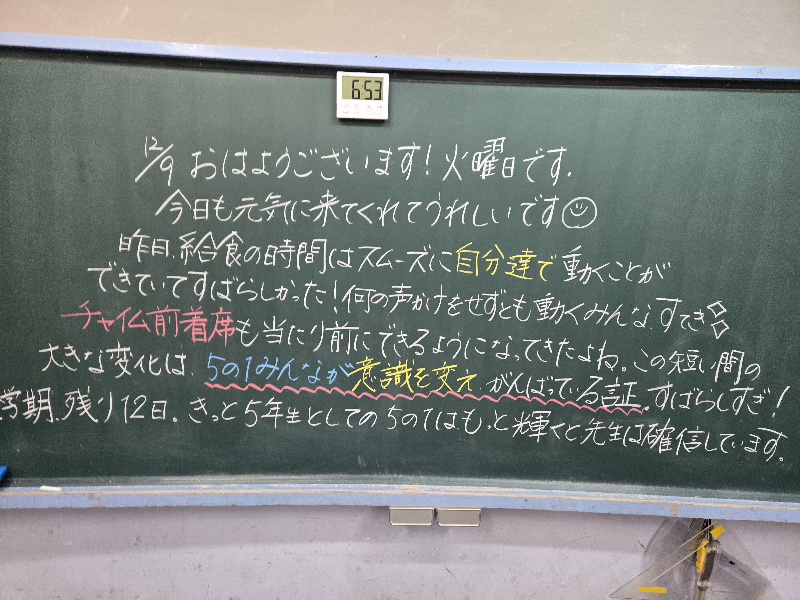 6:53
12/9 おはようございます！火曜日です。
今日も元気に来てくれてうれしいです
昨日、給食の時間はスムーズに自分達で動くことが
できていてすばらしかった！何の声かけをせずとも動くみんな、すてき
チャイム前着席も当たり前にできるようになってきたよね。この短い間の
大きな変化は、5の1みんなが意識を変え、がんばっている証。すばらしすぎ！
学期、残り12日。きっと5年生としての5の1はもっと輝くと先生は確信しています。